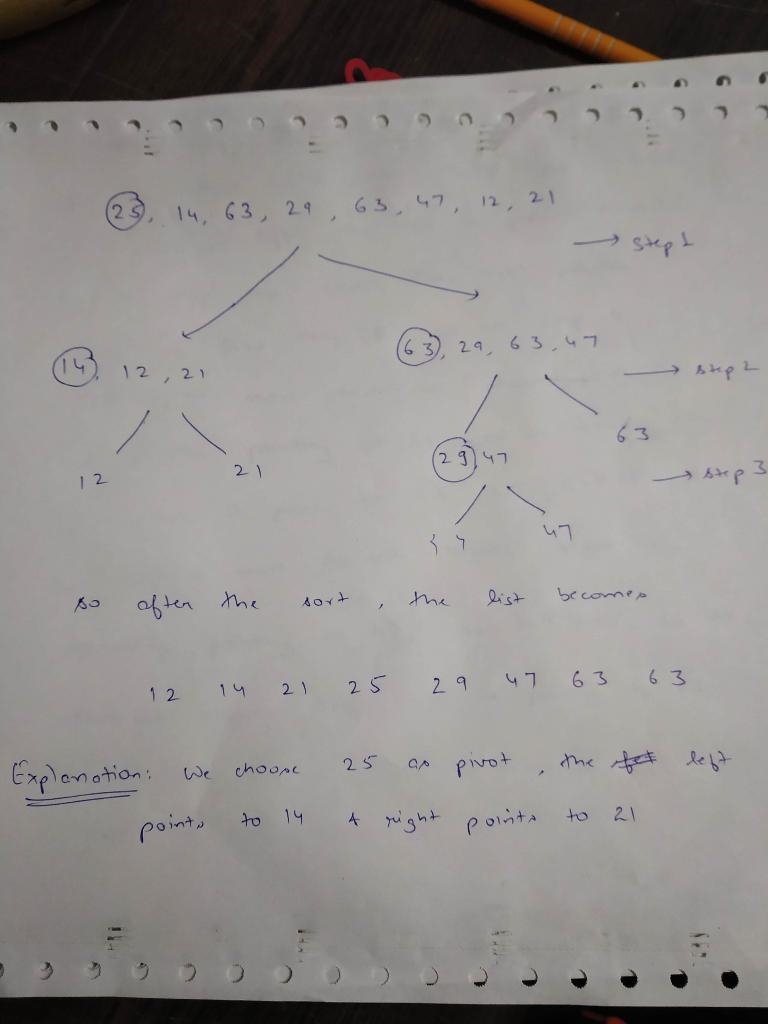 25, 14, 63, 29, 63, 47, 12, 21
→ step 1
63, 29, 63, 47
14, 12, 21
→ step 2
63
29, 47
12 21
→ step 3
47
so after the sort, the list becomes
12 14 21 25 29 47 63 63
Explanation: We choose 25 as pivot, the left
points to 14 & right points to 21